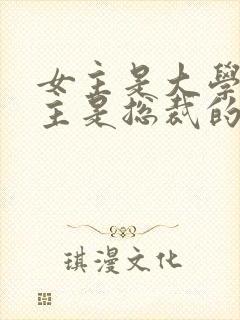 女主是大學
主是總裁的
琪漫文化